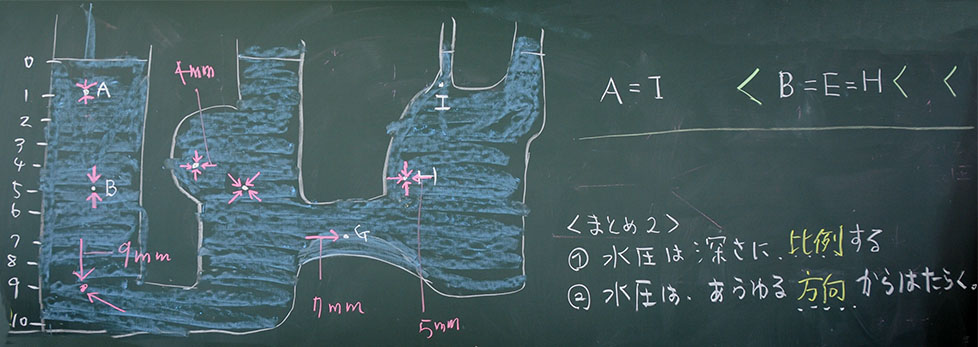 0
1
2
3
4
5
6
7
8
9
10
A
B
4mm
9mm
I
G
7mm
5mm
A = I < B = E = H < <
<まとめ2>
① 水圧は深さに比例する
② 水圧は、あらゆる方向からはたらく。